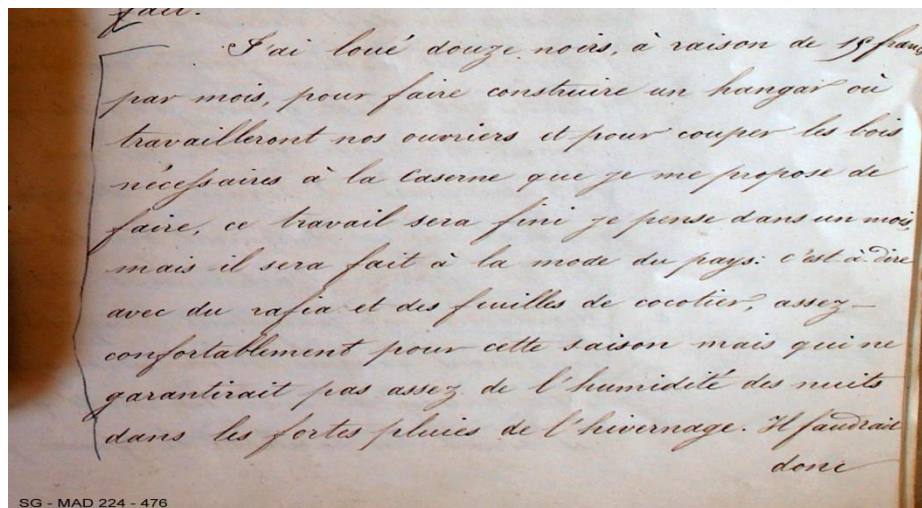 fait.
J'ai loué douze noirs, à raison de 15 francs
par mois, pour faire construire un hangar où
travailleront nos ouvriers et pour couper les bois
nécessaires à la Caserne que je me propose de
faire, ce travail sera fini je pense dans un mois,
mais il sera fait à la mode du pays: c'est à dire
avec du rafia et des feuilles de cocotier, assez
confortablement pour cette saison mais qui ne
garantirait pas assez de l'humidité des nuits
dans les fortes pluies de l'hivernage. Il faudrait
donc
SG - MAD 224 - 476